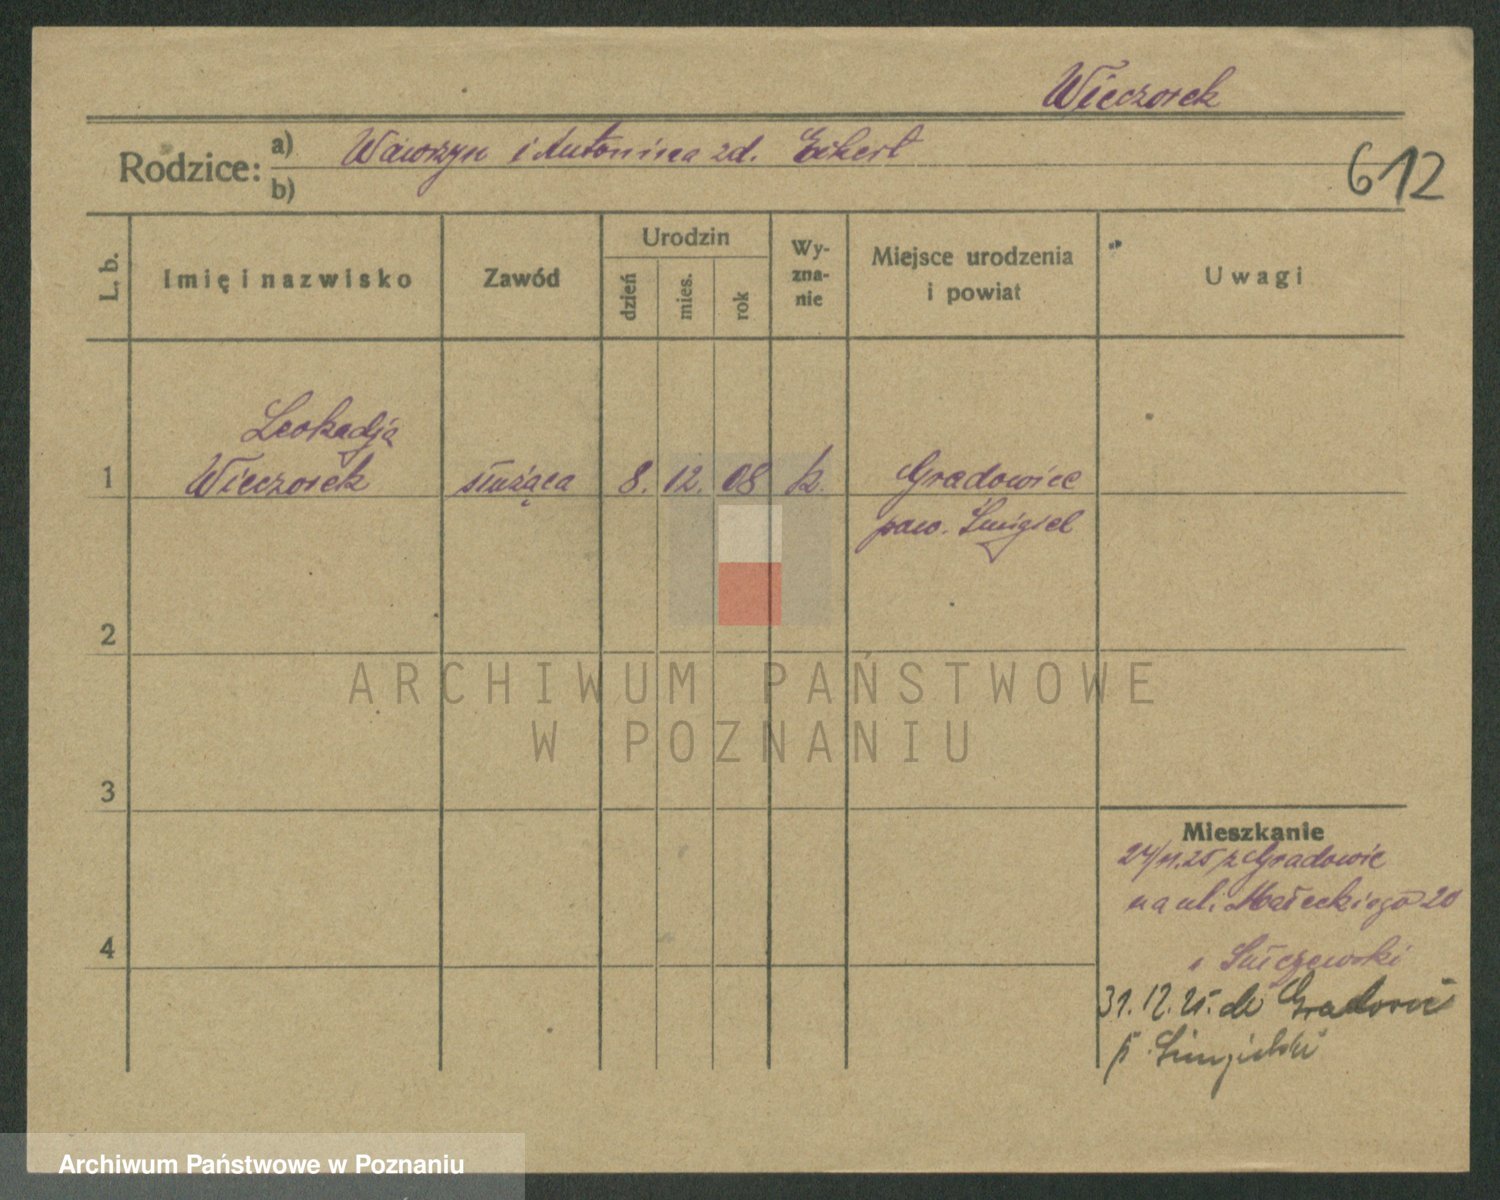 Wieczorek
Rodzice: a) Wawrzyn i Antonina zd. Eckert
b)
612
L. b.
Imię i nazwisko
Zawód
Urodzin
dzień
mies.
rok
Wy-
zna-
nie
Miejsce urodzenia
i powiat
Uwagi
Leokadja
1 Wieczorek służąca 8. 12. 08 k. Gradowice
pow. Śmigiel
2
ARCHIWUM PAŃSTWOWE
W POZNANIU
3
Mieszkanie
24/11.25 z Gradowic
na ul. Małeckiego 20
4
31.12.25. do Gradowic
p. Śmigielski
Archiwum Państwowe w Poznaniu